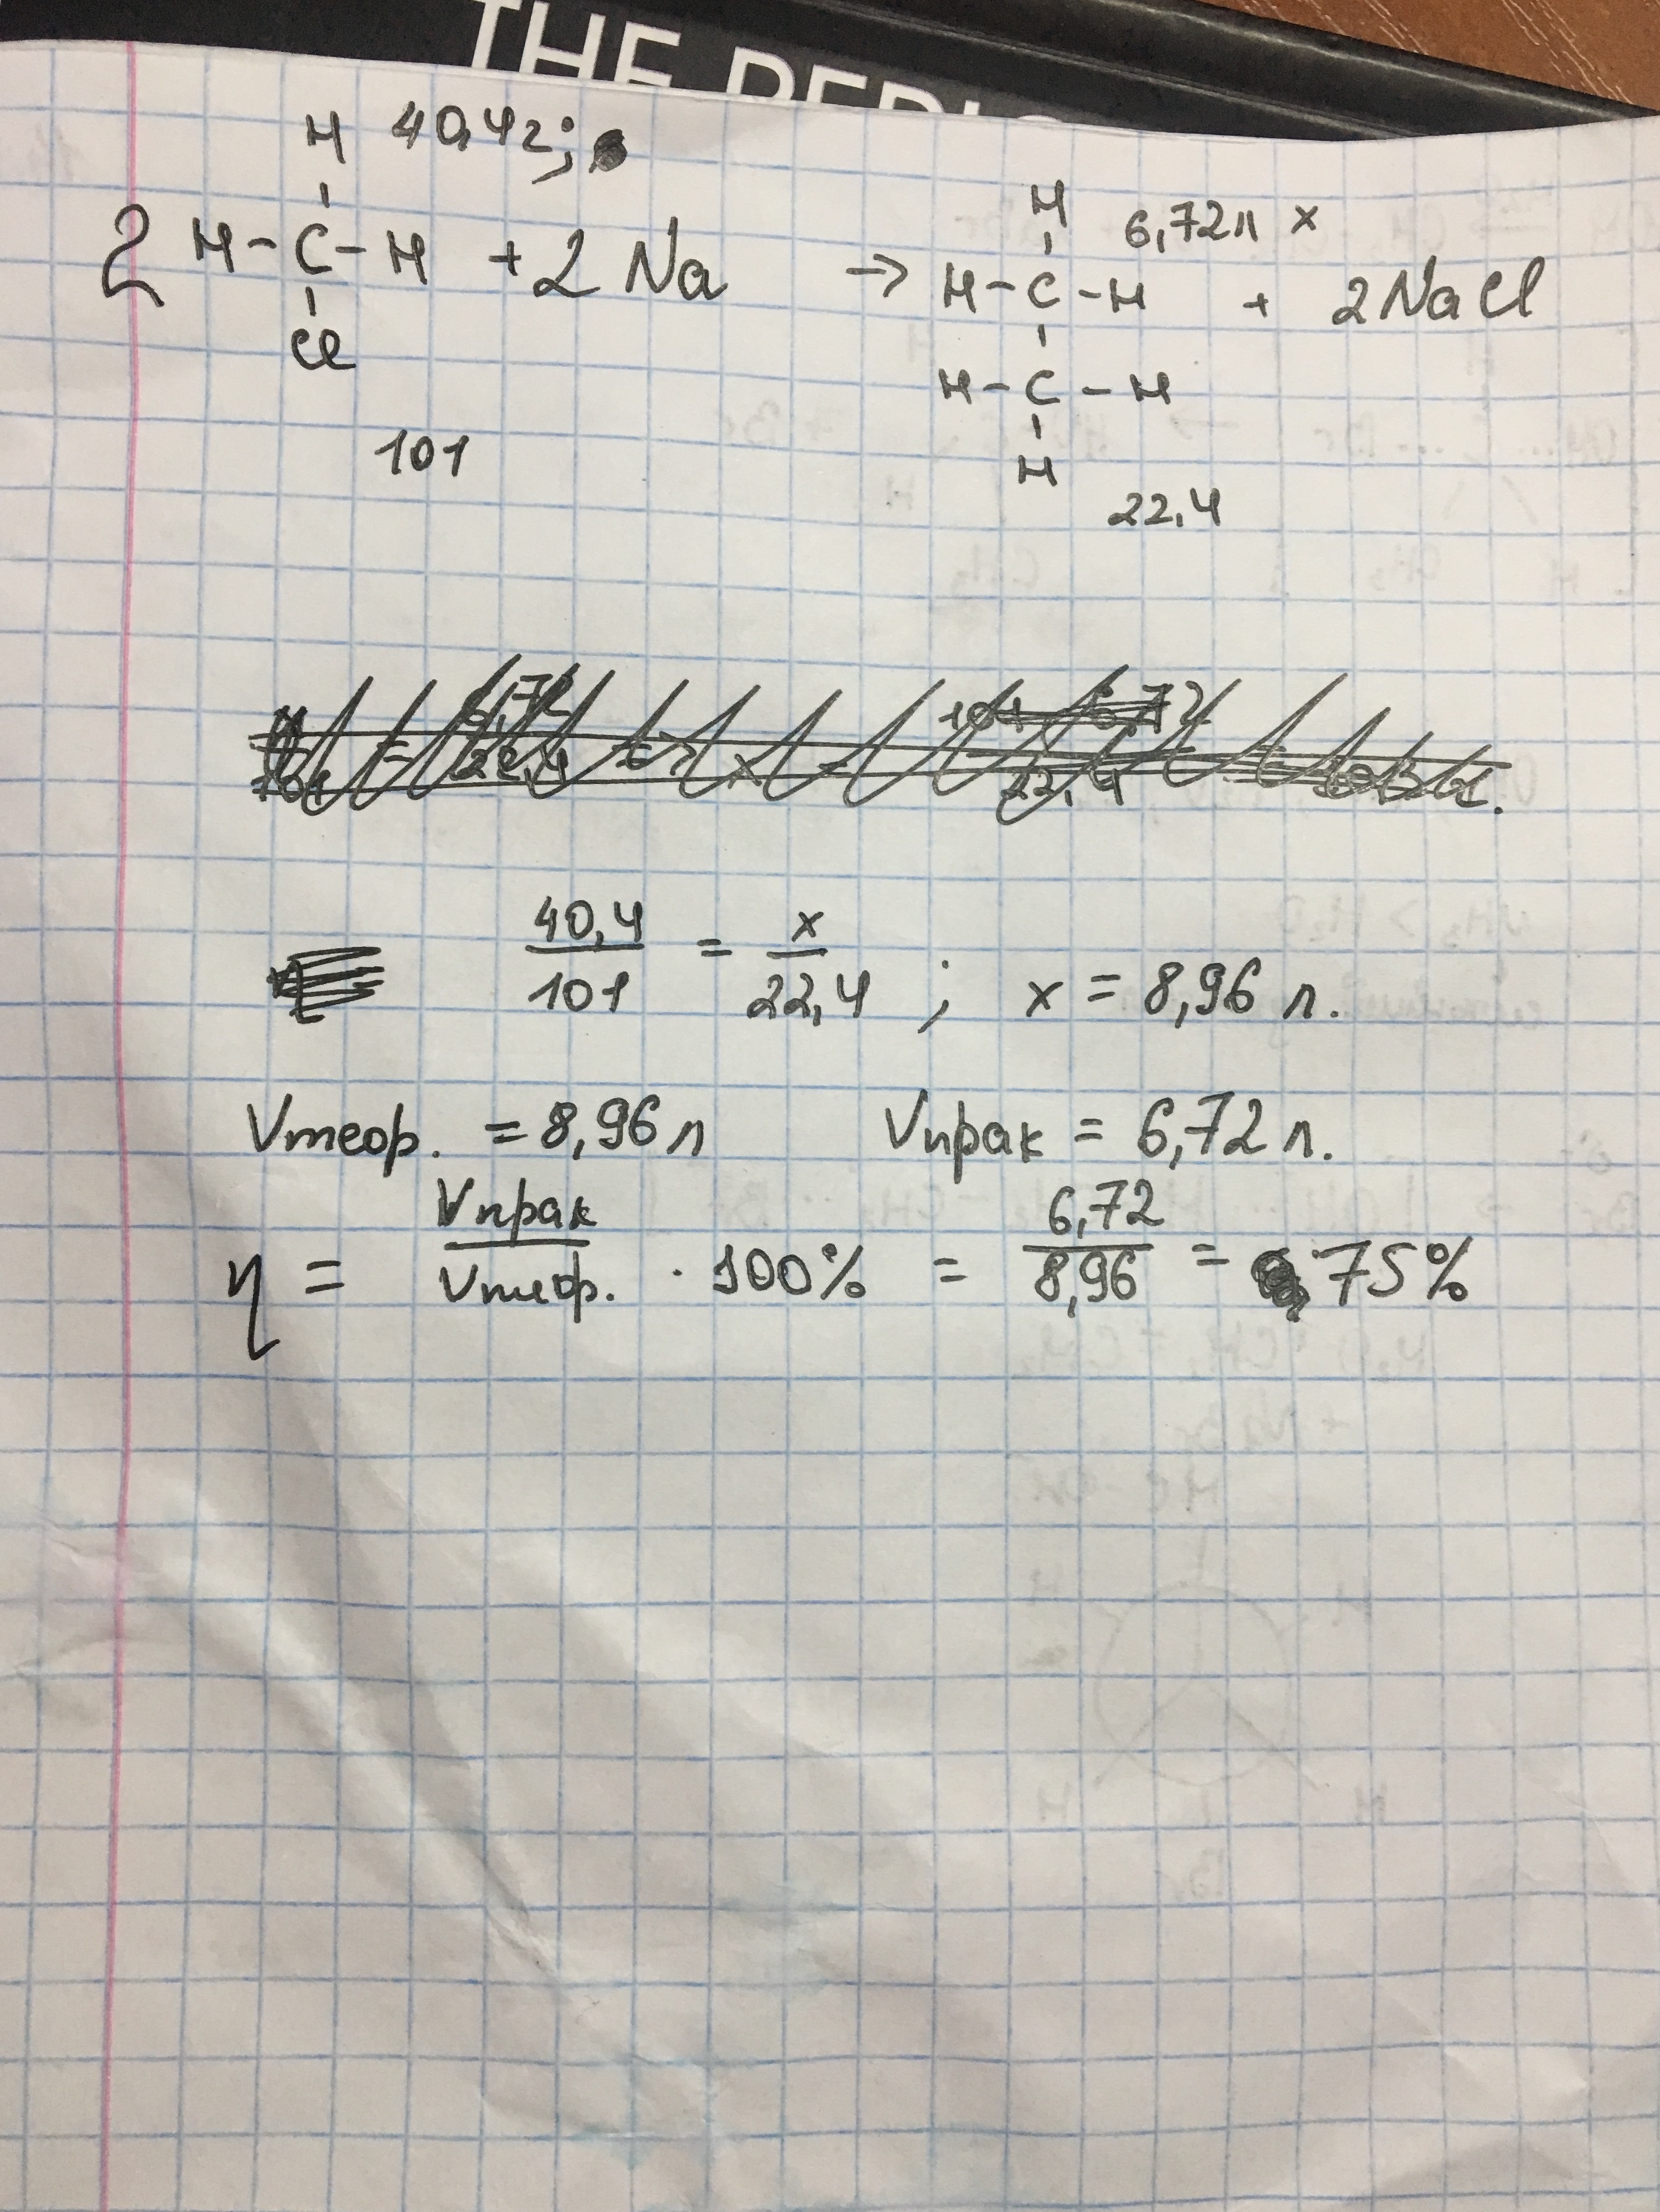 THE PERI
H 40,4г;
2 H-C-H + 2 Na → H-C-H + 2NaCl
Cl
H 6,72л x
H-C-H
H
101
22,4
40,4/101 = x/22,4 ; x = 8,96 л.
Vтеор. = 8,96 л Vпрак = 6,72 л.
η = Vпрак/Vтеор. · 100% = 6,72/8,96 = 75%